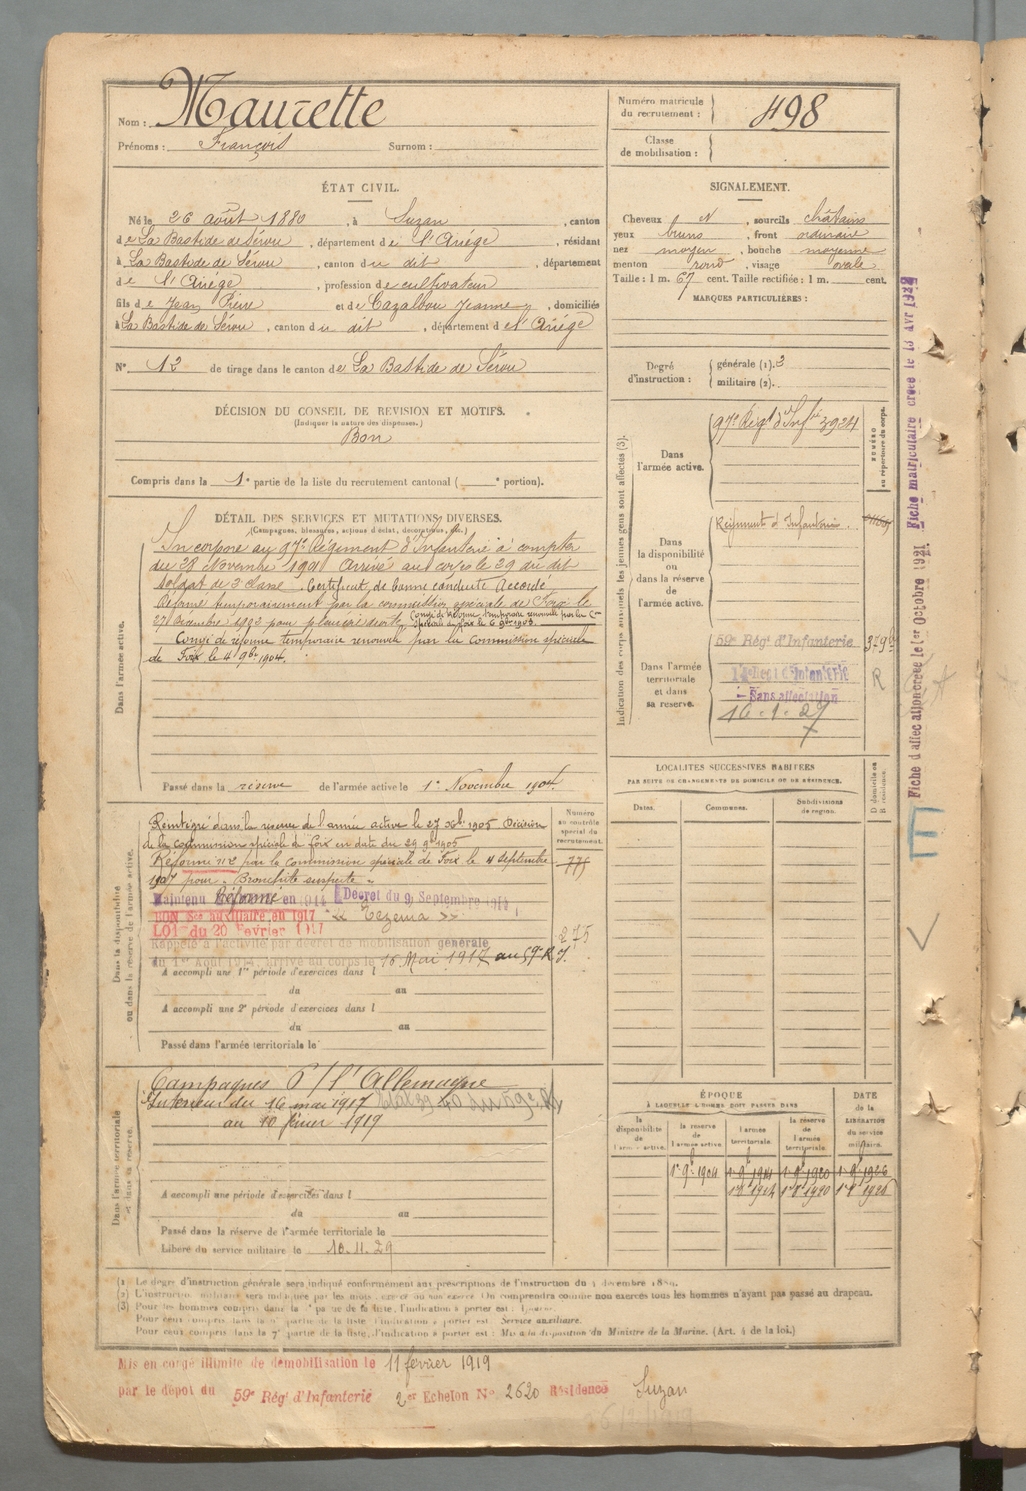 Nom : Maurette
Prénoms : François Surnom :
Numéro matricule du recrutement : 498
Classe de mobilisation :
ÉTAT CIVIL.
Né le 26 août 1880, à Suzan, canton
de La Bastide de Sérou, département de l'Ariége, résidant
à La Bastide de Sérou, canton du dit, département
de l'Ariége, profession de cultivateur
fils de Jean Pierre et de Cazalbou Jeanne, domiciliés
à La Bastide de Sérou, canton du dit, département de l'Ariége
N° 12 de tirage dans le canton de La Bastide de Sérou
SIGNALEMENT.
Cheveux N, sourcils châtains
yeux bruns, front ordinaire
nez moyen, bouche moyenne
menton rond, visage ovale
Taille : 1 m. 67 cent. Taille rectifiée : 1 m. cent.
MARQUES PARTICULIÈRES :
Degré d'instruction : générale (1). 3
militaire (2).
DÉCISION DU CONSEIL DE REVISION ET MOTIFS.
(Indiquer la nature des dispenses.)
Bon
Compris dans la 1e partie de la liste du recrutement cantonal ( e portion).
DÉTAIL DES SERVICES ET MUTATIONS DIVERSES.
(Campagnes, blessures, actions d'éclat, décorations, etc.)
Dans l'armée active.
Incorporé au 97e Régiment d'Infanterie à compter
du 28 Novembre 1901 Arrivé au corps le 29 du dit
soldat de 2 classe. Certificat de bonne conduite Accordé
Réformé temporairement par la commission spéciale de Foix le
27 décembre 1902 pour pleurésie droite. Congé de réforme temporaire renouvelé par la Con
spéciale de Foix le 6 9bre 1903.
Congé de réforme temporaire renouvelé par la Commission spéciale
de Foix le 4 9bre 1904.
Passé dans la réserve de l'armée active le 1er Novembre 1904.
Indication des corps auxquels les jeunes gens sont affectés (3).
NUMÉRO au répertoire du corps.
Dans l'armée active.
97e Régt d'Infrie 3924
Dans la disponibilité ou dans la réserve de l'armée active.
Régiment d'Infanterie
Dans l'armée territoriale et dans sa réserve.
59e Régt d'Infanterie
Sans affectation
16.1.27
R
LOCALITÉS SUCCESSIVES HABITÉES
PAR SUITE DE CHANGEMENTS DE DOMICILE OU DE RÉSIDENCE.
Dates. Communes. Subdivisions de region. D domicile ou R résidence.
Dans la disponibilité ou dans la réserve de l'armée active.
Numéro au contrôle spécial du recrutement.
775
Réintégré dans la réserve de l'armée active le 27 Xbre 1905 Décision
de la commission spéciale de Foix en date du 29 9bre 1905
Réformé n°2 par la commission spéciale de Foix le 4 septembre
1907 pour « Bronchite suspecte »
Maintenu Réformé en 1914 Décret du 9 Septembre 1914
BON Sce auxiliaire en 1917 « Eczema »
LOI du 20 Fevrier 1917
275
Rappelé à l'activité par décret de mobilisation générale
du 1er Août 1914, arrivé au corps le 16 Mai 1917 au 59e R.I.
A accompli une 1re période d'exercices dans l
du au
A accompli une 2e période d'exercices dans l
du au
Passé dans l'armée territoriale le
Dans l'armée territoriale et dans sa réserve.
Campagnes C/ l'Allemagne
Intérieur du 16 mai 1917
au 10 février 1919
A accompli une période d'exercices dans l
du au
Passé dans la réserve de l'armée territoriale le
Libéré du service militaire le 10.11.29
ÉPOQUE
À LAQUELLE L'HOMME DOIT PASSER DANS
la disponibilité de l'armée active. la réserve de l'armée active l'armée territoriale. la réserve de l'armée territoriale.
DATE de la LIBÉRATION du service militaire.
1er 9bre 1904 1er 9bre 1914 1er 9bre 1920 1er 9bre 1926
(1) Le degré d'instruction générale sera indiqué conformément aux prescriptions de l'instruction du 4 décembre
(2) L'instruction militaire sera indiquée par les mots : exercé ou non exercé. On comprendra comme non exercés tous les hommes n'ayant pas passé au drapeau.
(3) Pour les hommes compris dans la partie de la liste, l'indication à porter est :
Pour ceux compris dans la partie de la liste l'indication à porter est : Service auxiliaire.
Pour ceux compris dans la 7e partie de la liste, l'indication à porter est : Mis à la disposition du Ministre de la Marine. (Art. 4 de la loi.)
Mis en congé illimité de démobilisation le 11 février 1919
par le dépôt du 59e Régt d'Infanterie 2er Echelon N° 2620 Résidence Suzan
Fiche d'affectation créée le 1er Octobre 1921. Fiche matriculaire créée le 13 Avr 1922
E